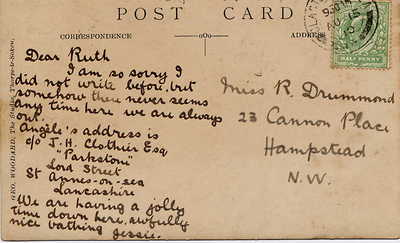 POST CARD
CORRESPONDENCE
ADDRESS
GEO. WOODARD, The Studio, Thorpe-le-Soken.
HALF PENNY
Dear Ruth
I am so sorry I
did not write before, but
somehow there never seems
any time here we are always
out.
Angèle's address is
c/o J. H. Clothier Esq
"Parkstone"
Lord Street
St Annes-on-sea
Lancashire
We are having a jolly
time down here, awfully
nice bathing Jessie.
Miss R. Drummond
23 Cannon Place
Hampstead
N.W.